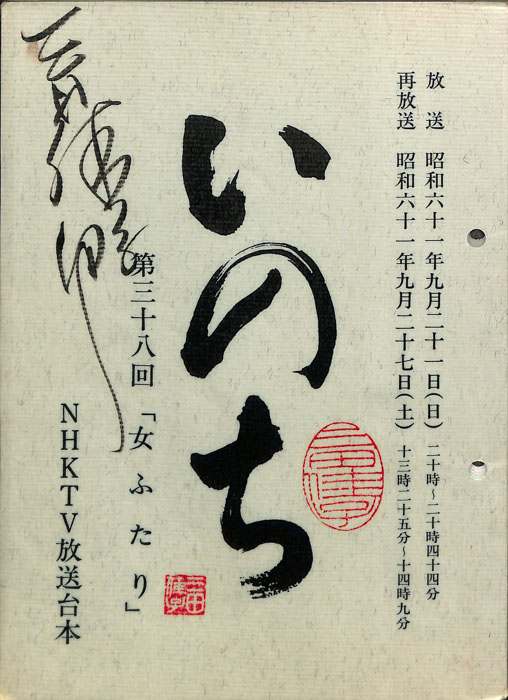 放送 昭和六十一年九月二十一日(日) 二十時～二十時四十四分
再放送 昭和六十一年九月二十七日(土) 十三時二十五分～十四時九分
いのち
第三十八回「女ふたり」
NHKTV放送台本